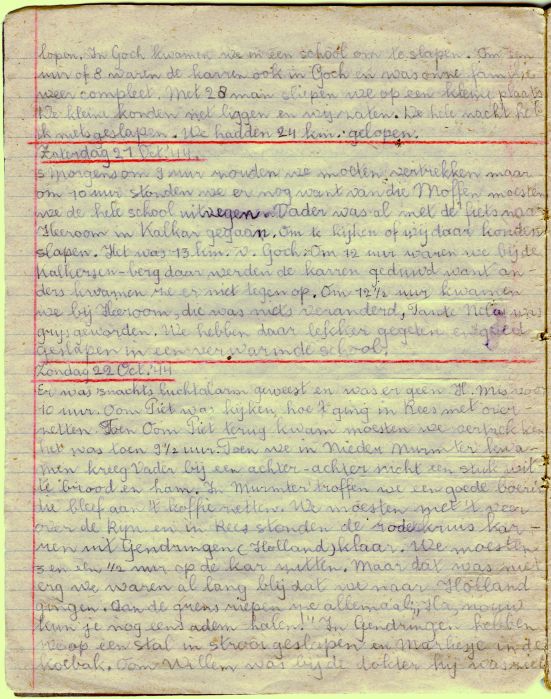 lopen. In Goch kwamen we in een school om te slapen. Om
uur of 8 waren de karren ook in Goch en was onze familie
weer compleet. Met 28 man sliepen we op een kleine plaats
We kleine konden niet liggen en wij zaten. De hele nacht heb
ik niet geslapen. We hadden 24 km. gelopen.
Zaterdag 21 Oct. '44.
s Morgens om 9 uur zouden we moeten vertrekken maar
om 10 uur stonden we er nog want van die Moffen moesten
we de hele school uitvegen. Vader was al met de fiets naar
Heeroom in Kalkar gegaan. Om te kijken of wij daar konden
slapen. Het was 13 km. v. Goch. Om 12 uur waren we bij de
Kalkersen-berg daar werden de karren geduwd want an-
ders kwamen ze er niet tegen op. Om 12½ uur kwamen
we bij Heeroom, die was niets veranderd, Tante Nela was
grijs geworden. We hebben daar lekker gegeten en goed
geslapen in een verwarmde school.
Zondag 22 Oct. '44
Er was snachts luchtalarm geweest en was er geen H. Mis voor
10 uur. Oom Piet was kijken, hoe 't ging in Rees met over-
zetten. Toen Oom Piet terug kwam moesten we vertrekken
het was toen 9½ uur. Toen we in Nieder Murmter kwa-
men kreeg Vader bij een achter-achter nicht een stuk wit-
te brood en ham. In Murmter troffen we een goede boerin
die bleef aan 't koffie zetten. We moesten met 't veer
over de Rijn en in Rees stonden de rode kruis kar-
ren uit Gendringen (Holland) klaar. We moesten
3 en een ½ uur op de kar zitten. Maar dat was niet
erg we waren al lang blij dat we naar Holland
gingen. Aan de grens riepen we allemaal; „Ha, nou
kun je nog eens adem halen!" In Gendringen hebben
we op een stal in strooi geslapen en Marietje in de
koebak. Oom Willem was bij de dokter hij was